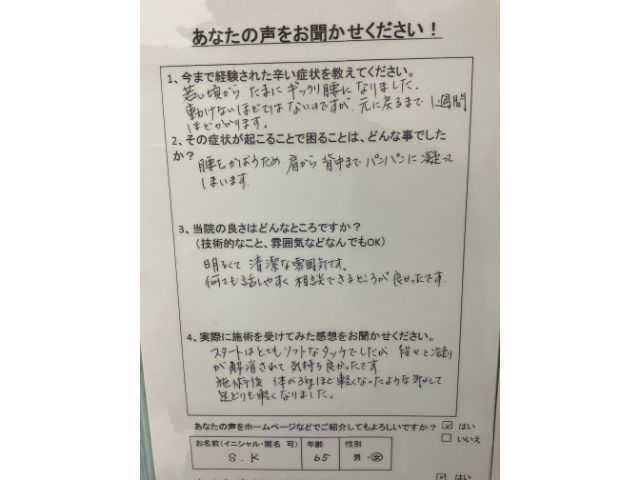 あなたの声をお聞かせください！
1、今まで経験された辛い症状を教えてください。
若い頃から、たまにギックリ腰になりました。
動けないほどではないのですが、元に戻るまで1週間
ほどかかります。
2、その症状が起こることで困ることは、どんな事でした
か？
腰をかばうため 肩から 背中まで パンパンに 凝って
しまいます。
3、当院の良さはどんなところですか？
（技術的なこと、雰囲気などなんでもOK）
明るくて 清潔な雰囲気です。
何でも話しやすく 相談できるところが 良かったです。
4、実際に施術を受けてみた感想をお聞かせください。
スタートはとてもソフトなタッチでしたが 段々と
が 解消されて 気持ち良かったです。
施術後 体が ほど軽くなったような気がして
足どりも軽くなりました。
あなたの声をホームページなどでご紹介してもよろしいですか？ ☑ はい
□ いいえ
お名前（イニシャル・匿名 可） 年齢 性別
S.K 65 男・女
☑ はい